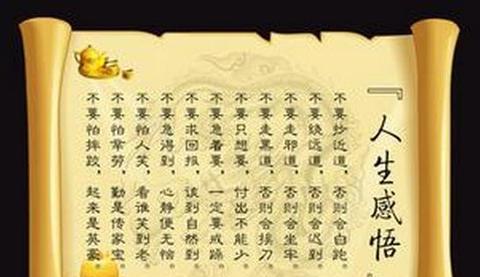 『人生感悟
不要抄近道，否则会白跑。
不要绕远道，否则会迟到。
不要走邪道，否则会坐牢。
不要走黑道，否则会挨刀。
不要只想要，付出不能少。
不要急着要，一定要戒躁。
不要求回报，该到自然到。
不要急得到，心静便无恼。
不要怕人笑，看谁笑到老。
不要怕辛劳，勤是传家宝。
不要怕摔跤，起来是英豪。